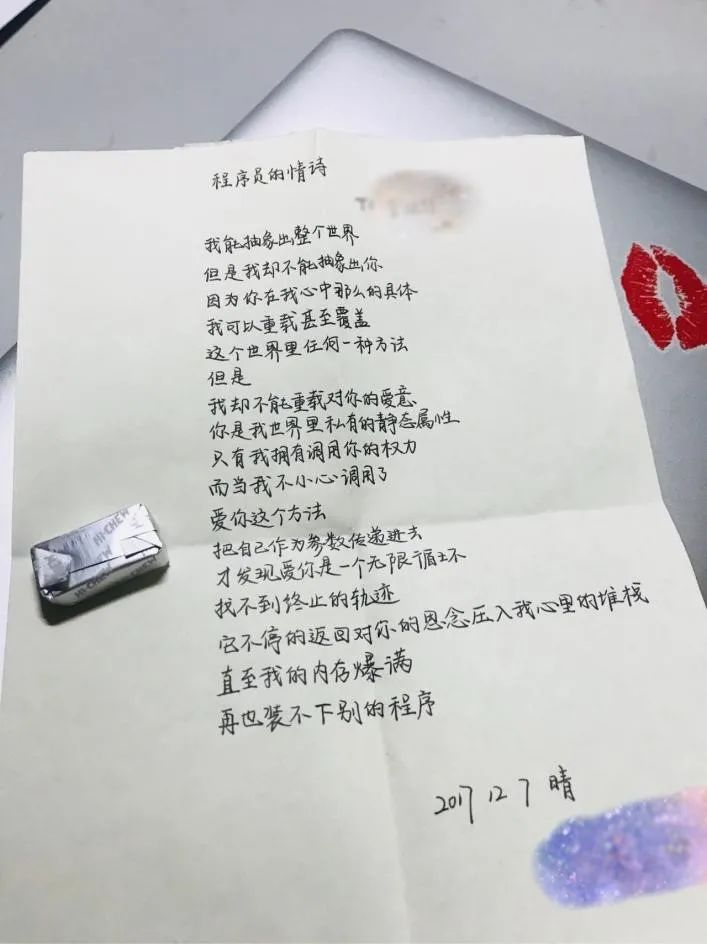 程序员的情诗
我能抽象出整个世界
但是我却不能抽象出你
因为你在我心中那么的具体
我可以重载甚至覆盖
这个世界里任何一种方法
但是
我却不能重载对你的爱意
你是我世界里私有的静态属性
只有我拥有调用你的权力
而当我不小心调用了
爱你这个方法
把自己作为参数传递进去
才发现爱你是一个无限循环
找不到终止的轨迹
它不停的返回对你的恩念压入我心里的堆栈
直至我的内存爆满
再也装不下别的程序
2017 12 7 晴
HI-CHEW
HI-CHEW